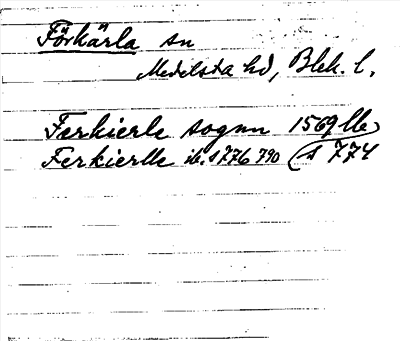 Förkärla sn
Medelsta hd, Blek. l.
Ferkierle sognn 1569 lb
Ferkierlle ib. s 776 790 (s 774